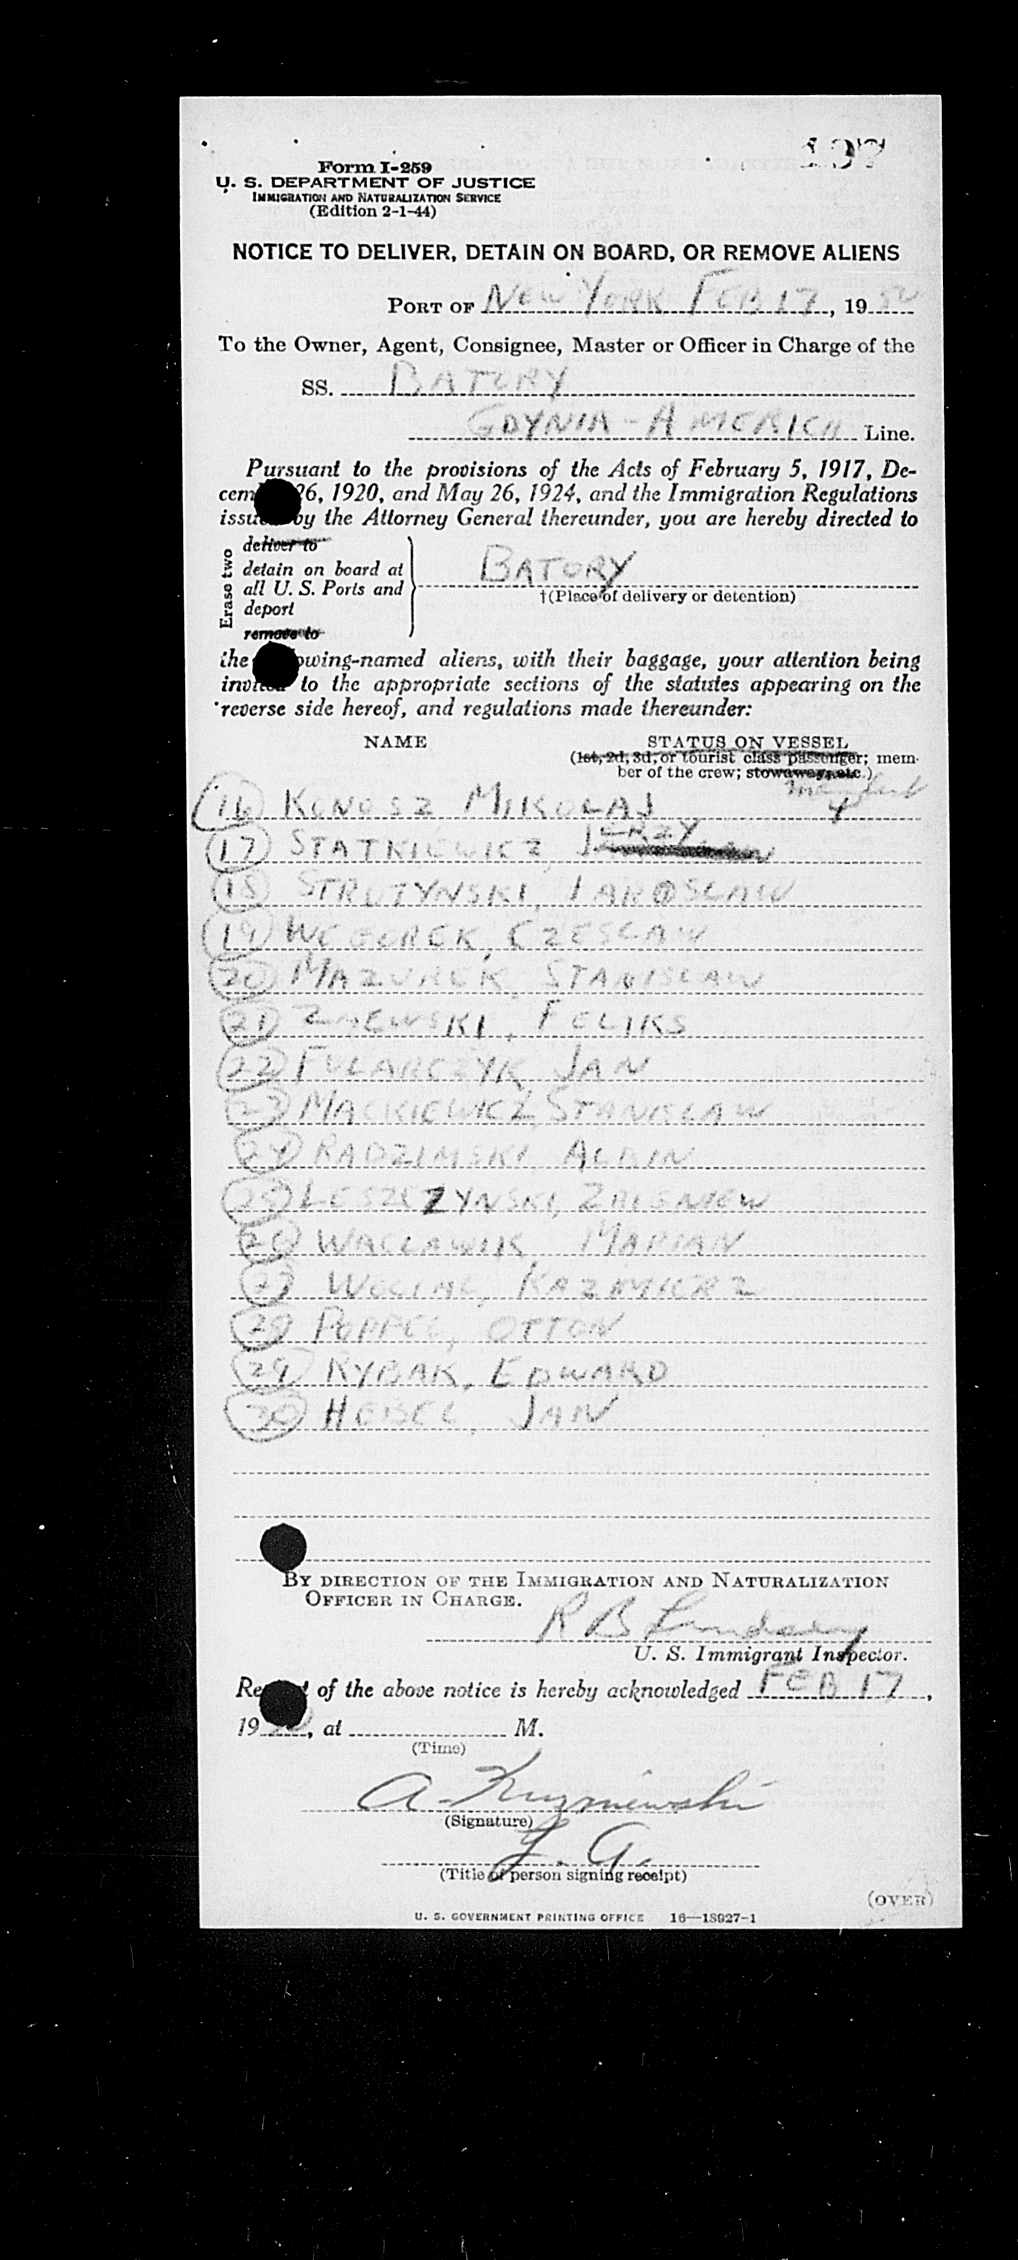 197
Form I-259
U. S. DEPARTMENT OF JUSTICE
IMMIGRATION AND NATURALIZATION SERVICE
(Edition 2-1-44)
NOTICE TO DELIVER, DETAIN ON BOARD, OR REMOVE ALIENS
PORT OF NEW YORK FEB 17, 19
To the Owner, Agent, Consignee, Master or Officer in Charge of the
SS. BATORY
GDYNIA-AMERICA Line.
Pursuant to the provisions of the Acts of February 5, 1917, De-
cem 26, 1920, and May 26, 1924, and the Immigration Regulations
issued by the Attorney General thereunder, you are hereby directed to
Erase two
deliver to
detain on board at
all U. S. Ports and
deport
remove to
BATORY
†(Place of delivery or detention)
the following-named aliens, with their baggage, your attention being
invited to the appropriate sections of the statutes appearing on the
reverse side hereof, and regulations made thereunder:
NAME STATUS ON VESSEL
(1st, 2d, 3d, or tourist class passenger; mem-
ber of the crew; stowaway, etc.)
16 KONOSZ MIKOLAJ
17 STATKIEWICZ, JERZY
18 STRUZYNSKI, JAROSLAW
19 WEGOREK, CZESLAW
20 MAZUREK, STANISLAW
21 ZMEWSKI, FELIKS
22 FULARCZYK, JAN
23 MACKIEWICZ, STANISLAW
24 RADZIMSKI, ALBIN
25 LESZCZYNSKI, ZBIGNIEW
26 WACLAWIK MARIAN
27 KAZMIERZ
28 POPPEL, OTTON
29 RYBAK, EDWARD
30 HEBEL, JAN
BY DIRECTION OF THE IMMIGRATION AND NATURALIZATION
OFFICER IN CHARGE.
R B Lindsay
U. S. Immigrant Inspector.
Receipt of the above notice is hereby acknowledged FEB 17,
19, at M.
(Time)
A. Kuzniewski
(Signature)
(Title of person signing receipt)
(OVER)
U. S. GOVERNMENT PRINTING OFFICE 16—18927-1